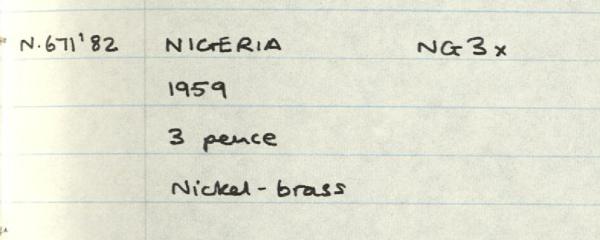 N.671'82 NIGERIA NG3x
1959
3 pence
Nickel-brass